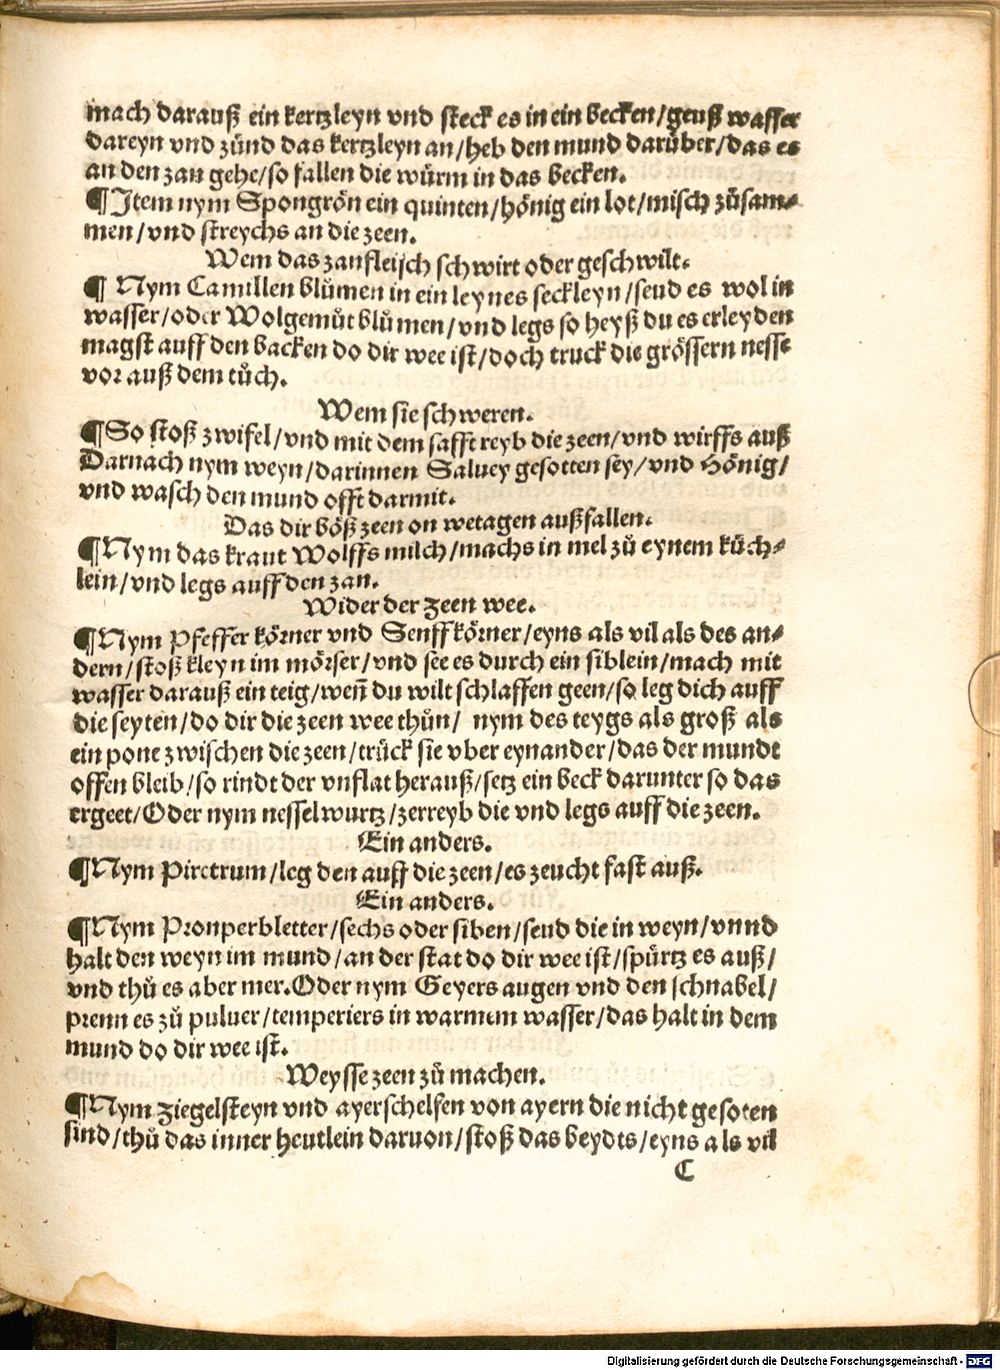 mach darauß ein kertzleyn vnd steck es in ein becken/geuß wasser
dareyn vnd zünd das kertzleyn an/heb den mund darüber/das es
an den zan gehe/so fallen die würm in das becken.
¶Item nym Spongrön ein quinten/hönig ein lot/misch zůsam⸗
men/vnd streychs an die zeen.
Wem das zanfleisch schwirt oder geschwilt.
¶ Nym Camillen blůmen in ein leynes seckleyn/seud es wol in
wasser/oder Wolgemůt blůmen/vnd legs so heyß du es erleyden
magst auff den backen do dir wee ist/doch truck die grössern nesse
vor auß dem tůch.
Wem sie schweren.
¶So stoß zwifel/vnd mit dem safft reyb die zeen/vnd wirffs auß
Darnach nym weyn/darinnen Saluey gesotten sey/vnd Hönig/
vnd wasch den mund offt darmit.
Das dir böß zeen on wetagen außfallen.
¶Nym das kraut Wolffs milch/machs in mel zů eynem küch⸗
lein/vnd legs auff den zan.
Wider der zeen wee.
¶Nym Pfeffer körner vnd Senff körner/eyns als vil als des an⸗
dern/stoß kleyn im mörser/vnd see es durch ein siblein/mach mit
wasser darauß ein teig/weñ du wilt schlaffen geen/so leg dich auff
die seyten/do dir die zeen wee thůn/ nym des teygs als groß als
ein pone zwischen die zeen/trück sie vber eynander/das der mundt
offen bleib/so rindt der vnflat herauß/setz ein beck darunter so das
ergeet/Oder nym nesselwurtz/zerreyb die vnd legs auff die zeen.
Ein anders.
¶Nym Piretrum/leg den auff die zeen/es zeucht fast auß.
Ein anders.
¶Nym Pronperbletter/sechs oder siben/seud die in weyn/vnnd
halt den weyn im mund/an der stat do dir wee ist/spürtz es auß/
vnd thů es aber mer.Oder nym Geyers augen vnd den schnabel/
prenn es zů puluer/temperiers in warmem wasser/das halt in dem
mund do dir wee ist.
Weysse zeen zů machen.
¶Nym ziegelsteyn vnd ayerschelfen von ayern die nicht gesoten
sind/thů das inner heutlein daruon/stoß das beydts/eyns als vil
C
Digitalisierung gefördert durch die Deutsche Forschungsgemeinschaft - DFG